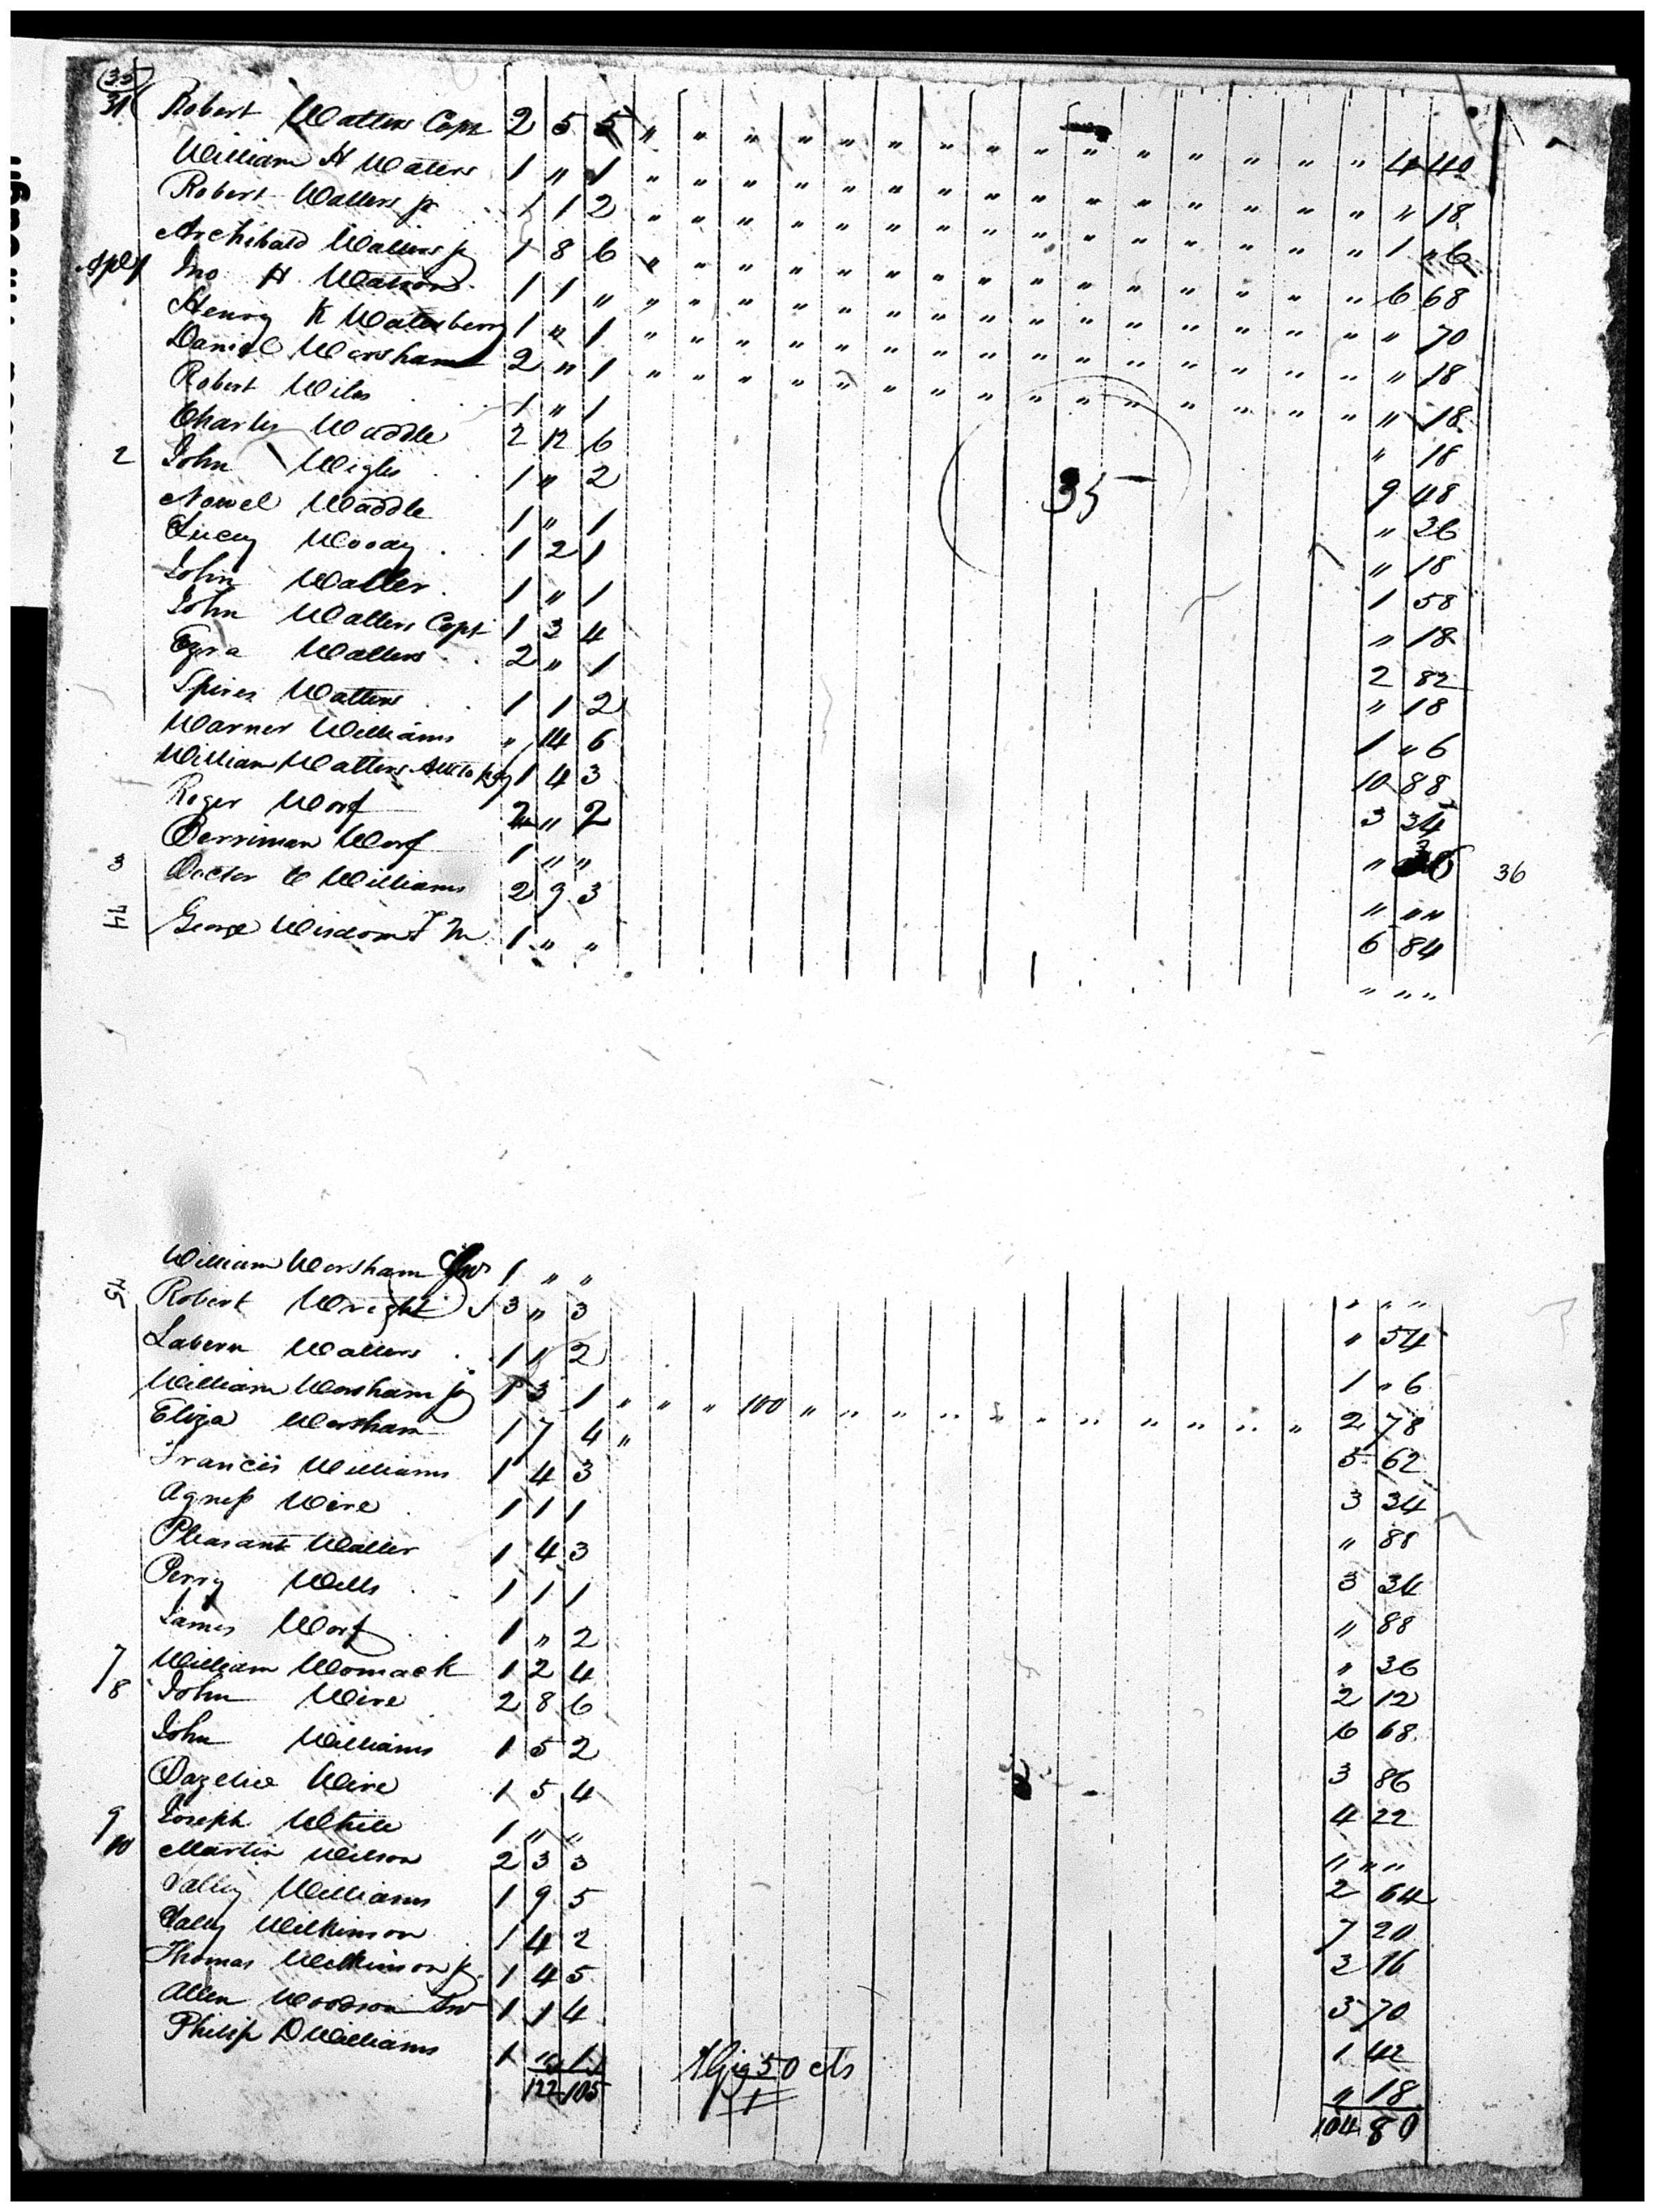 35
31 Robert Watters Capt 2 5 5 " " " " " " " " " " " " " " " " 4 40
William H Watters 1 " 1 " " " " " " " " " " " " " " " " " 18
Robert Watters jr 1 1 2 " " " " " " " " " " " " " " " " 1 " 6
Archibald Watters jr 1 8 6 " " " " " " " " " " " " " " " " 6 68
Jno H Watson 1 1 " " " " " " " " " " " " " " " " " " 70
Henry K Waterberry 1 " 1 " " " " " " " " " " " " " " " " " 18
Daniel Worsham 2 " 1 " " " " " " " " " " " " " " " " " 18
Robert Wiles 1 " 1 " 18
Charles Waddle 2 12 6 9 48
2 John Wigls 1 " 2 " 36
35
Nowel Waddle 1 " 1 " 18
Lucy Woody 1 2 1 1 58
John Waller 1 " 1 " 18
John Watters Capt 1 3 4 2 82
Ezra Watters 2 " 1 " 18
Spires Watters 1 1 2 1 " 6
Warner Williams " 14 6 10 88
William Watters 1 4 3 3 34
Roger Worf 2 " 2 " 36 36
Berriman Worf 1 " " " " "
3 Doctor C Williams 2 9 3 6 84
4 George Wisdom 1 " " " " "
William Worsham 1 " " " " "
5 Robert Wright 3 " 3 " 54
Labern Watters 1 1 2 1 " 6
William Worsham jr 1 3 1 " " " 100 " " " " " " " " " " " 2 78
Eliza Worsham 1 7 4 " 5 62
Francis Williams 1 4 3 3 34
Agness Wire 1 1 1 " 88
Pleasant Waller 1 4 3 3 34
Perry Wells 1 1 1 " 88
James Worf 1 " 2 " 36
7 William Womack 1 2 4 2 12
8 John Wire 2 8 6 6 68
John Williams 1 5 2 3 86
Wire 1 5 4 4 22
9 Joseph White 1 " " " " "
10 Martin Wilson 2 3 3 2 64
Sally Williams 1 9 5 7 20
Sally Wilkinson 1 4 2 3 16
Thomas Wilkinson jr 1 4 5 3 70
Allen Woodson 1 1 4 1 42
Philip D Williams 1 " 1 " 18
122 105 50 cts 104 80